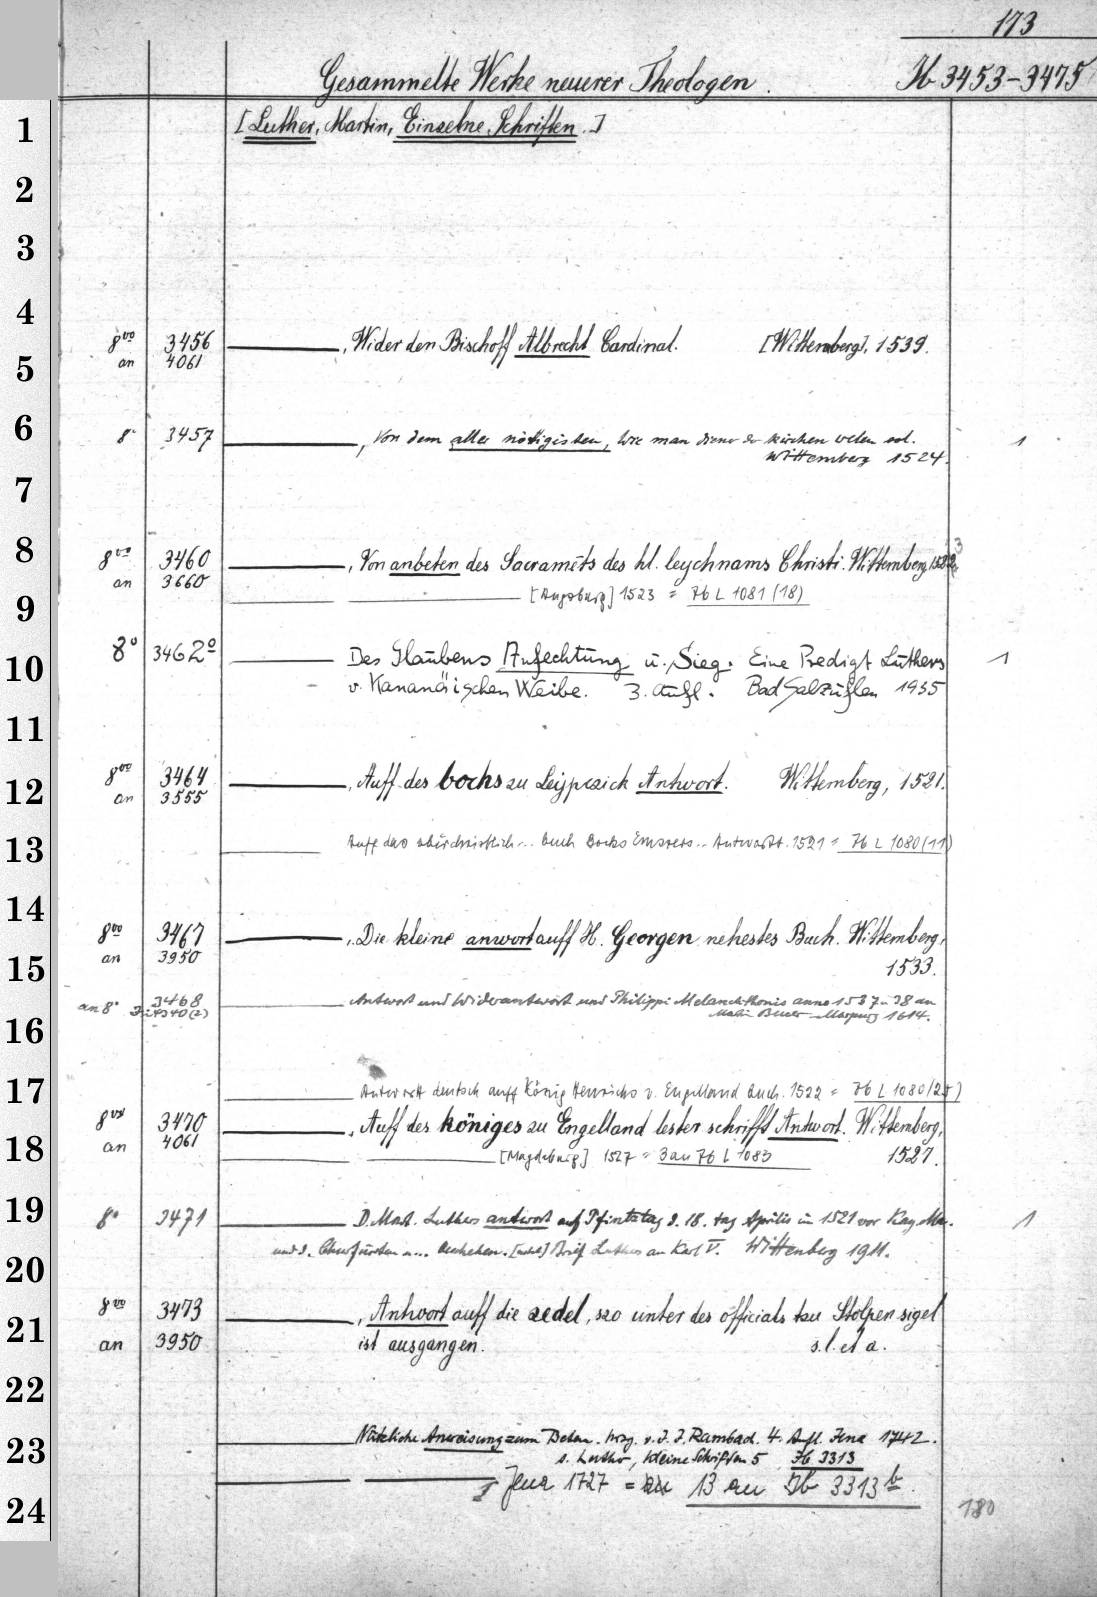 173
Gesammelte Werke neuerer Theologen. Jb 3453-3475
1 [Luther, Martin, Einzelne Schriften.]
2
3
4
8vo 3456 , Wider den Bischoff Albrecht Cardinal. [Wittemberg], 1539.
5 an 4061
6 8° 3457 , Von dem aller nötigisten, Wie man diener der kirchen welen sol. 1
Wittemberg 1524.
7
8 8vo 3460 , Von anbeten des Sacramēts des hl. leychnams Christi. Wittemberg
an 3660
9 [Augsburg] 1523 = 76 L 1081 (18)
10 8° 3462° Des Glaubens Anfechtung u. Sieg. Eine Predigt Luthers 1
v. Kananäischen Weibe. 3. Aufl. Bad Salzuflen 1935
11
8vo 3464 , Auff des bocks zu Leypczick Antwort. Wittemberg, 1521.
12 an 3555
13 Auff das Buch Bocks Emsers .. Antwortt. 1521 = 76 L 1080 (11)
14
8vo 3467 , Die kleine anwort auff H. Georgen nehestes Buch. Wittemberg,
15 an 3950 1533.
an 8° 3468 Antwort und Widerantwort und Philippi Melanchthonis anno 1537 u 38 an
16 Marpurg 1614.
17 Antwortt deutsch auff König Henrichs v. Engelland Buch. 1522 = 76 L 1080 (25)
8vo 3470 , Auff des königes zu Engelland lester schrifft Antwort. Wittemberg,
18 an 4061 [Magdeburg] 1527 = 3 an 76 L 1083 1527.
19 8° 3471 D. Mart. Luthers antwort auf Pfintztag d. 18. tag Aprilis in 1521 vor Kay. Ma. 1
20 und d. Churfürsten u... Brief Luthers an Karl V. Wittenberg 1911.
8vo 3473 , Antwort auff die zedel, szo unter des officials tzu Stolpen sigel
21 an 3950 ist ausgangen. s. l. et a.
22
23 Nützliche Anweisung zum Beten. hrsg. v. J. J. Rambach. 4. Aufl. Jena 1742.
s. Luther, Kleine Schriften 5 Jb 3313
24 Jena 1727 = 13 an Jb 3313 b.
180